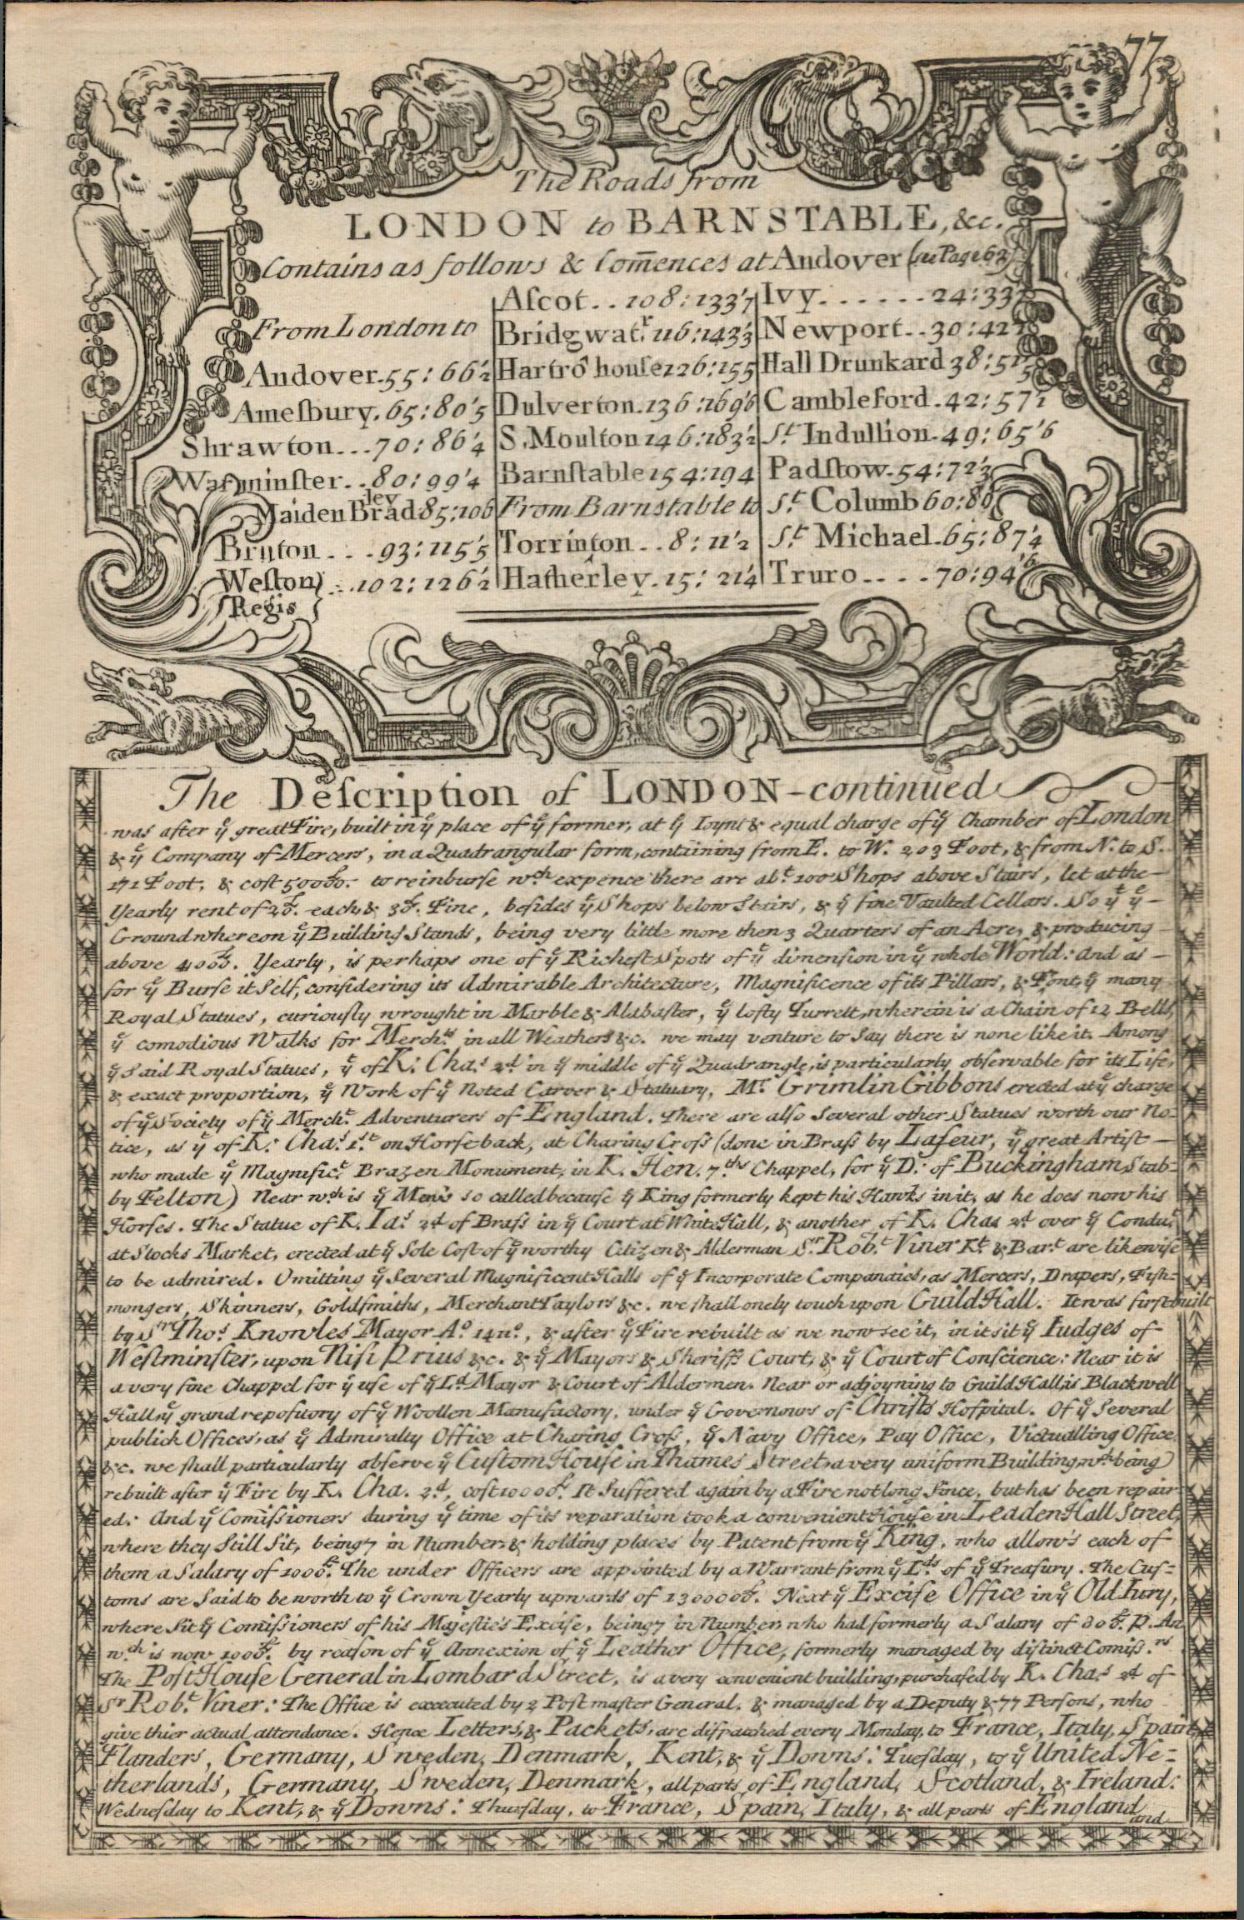 77
The Roads from
LONDON to BARNSTABLE, &c.
Contains as follows & Com̄ences at Andover (see Page 62)
From London to
Andover. 55 : 66'2
Amesbury. 65 : 80'5
Shrawton... 70 : 86'4
Warminster.. 80 : 99'4
Maiden Bradley 85 : 106
Bruton.... 93 : 115'5
Weston Regis } ... 102 : 126'2
Ascot.. 108 : 133'7
Bridgwatr. 116 : 143'3
Hartro' house 126 : 155
Dulverton. 136 : 169'6
S. Moulton 146 : 183'2
Barnstable 154 : 194
From Barnstable to
Torrinton.. 8 : 11'2
Hatherley. 15 : 21'4
Ivy...... 24 : 33
Newport.. 30 : 42
Hall Drunkard 38 : 51'5
Cambleford. 42 : 57'1
St. Indullion. 49 : 65'6
Padstow. 54 : 72'3
St. Columb 60 : 80
St. Michael. 65 : 87'4
Truro.... 70 : 94'6
The Description of LONDON - continued
was after ye great Fire, built in ye place of ye former, at ye Ioynt & equal charge of ye Chamber of London
& ye Company of Mercers, in a Quadrangular form, containing from E. to W. 203 Foot, & from N. to S.
171 Foot, & cost 50000£. to reinburse wch. expence there are abt. 200 Shops above Stairs, let at the
Yearly rent of 20£. each, & 30£. Fine, besides ye Shops below Stairs, & ye fine Vaulted Cellars. So yt ye
Ground whereon ye Building Stands, being very little more then 3 Quarters of an Acre, & producing
above 4000£. Yearly, is perhaps one of ye Richest Spots of ye dimension in ye whole World: And as
for ye Burse it Self, considering its Admirable Architecture, Magnificence of its Pillars, & Font, ye many
Royal Statues, curiously wrought in Marble & Alabaster, ye lofty Turrett, wherein is a Chain of 12 Bells,
ye comodious Walks for Merchts. in all Weathers &c. we may venture to Say there is none like it. Among
ye Said Royal Statues, yt of K. Chas. 2d. in ye middle of ye Quadrangle, is particularly observable for its Life,
& exact proportion, ye Work of ye Noted Carver & Statuary, Mr. Grimlin Gibbons erected at ye charge
of ye Society of ye Mercht. Adventurers of England. There are also Several other Statues worth our No-
tice, as yt of K. Chas. 1st. on Horseback, at Charing Cross (done in Brass by Laseur, yt great Artist
who made ye Magnifict. Brazen Monument, in K. Hen. 7ths Chappel, for ye D. of Buckingham Stab-
by Felton) Near wch is ye Mews so called because ye King formerly kept his Hawks in it, as he does now his
Horses. The Statue of K. Ias. 2d. of Brass in ye Court at White Hall, & another of K. Chas 2d. over ye Conduit
at Stocks Market, erected at ye Sole Cost of ye worthy Citizen & Alderman Sr. Robt. Viner Kt. & Bart. are likewise
to be admired. Omitting ye Several Magnificent Halls of ye Incorporate Companaies, as Mercers, Drapers, Fish-
mongers, Skinners, Goldsmiths, Merchant Taylors &c. we shall onely touch upon Guild Hall. It was first built
by Sr. Thos. Knowles Mayor Ao. 1411o, & after ye Fire rebuilt as we now see it, in it sit ye Iudges of
Westminster, upon Nisi Prius &c. & ye Mayors & Sheriffs Court, & ye Court of Conscience: Near it is
a very fine Chappel for ye use of ye Ld. Mayor & Court of Aldermen. Near or adjoyning to Guild Hall, is Blackwell
Hall, ye grand repository of ye Woollen Manufactory, under ye Governours of Christs Hospital. Of ye Several
publick Offices, as ye Admiralty Office at Charing Cross, ye Navy Office, Pay Office, Victualling Office,
&c. we shall particularly observe ye Custom House in Thames Street, a very uniform Building, wch being
rebuilt after ye Fire by K. Cha. 2d, cost 10000£. It Suffered again by a Fire not long Since, but has been repair-
ed: And ye Comissioners during ye time of its reparation took a convenient House in Leaden Hall Street,
where they Still Sit, being 7 in Number, & holding places by Patent from ye King, who allow's each of
them a Salary of 1000£. The under Officers are appointed by a Warrant from ye Lds of ye Treasury. The Cus-
toms are Said to be worth to ye Crown Yearly upwards of 1300000£. Next ye Excise Office in ye Old Iury,
where Sit ye Comissioners of his Majestie's Excise, being 7 in Number, who had formerly a Salary of 800£. P. An
wch is now 1000£. by reason of ye Annexion of ye Leather Office, formerly managed by distinct Comissrs.
The Post House General in Lombard Street, is a very convenient building, purchased by K. Chas. 2d. of
Sr Robt. Viner: The Office is excecuted by 2 Post master General, & managed by a Deputy & 77 Persons, who
give thier actual attendance. Hence Letters, & Packets, are dispatched every Monday, to France, Italy, Spain,
Flanders, Germany, Sweden, Denmark, Kent, & ye Downs: Tuesday, to ye United Ne-
therlands, Germany, Sweden, Denmark, all parts of England, Scotland, & Ireland:
Wednesday to Kent, & ye Downs: Thursday, to France, Spain, Italy, & all parts of England
and